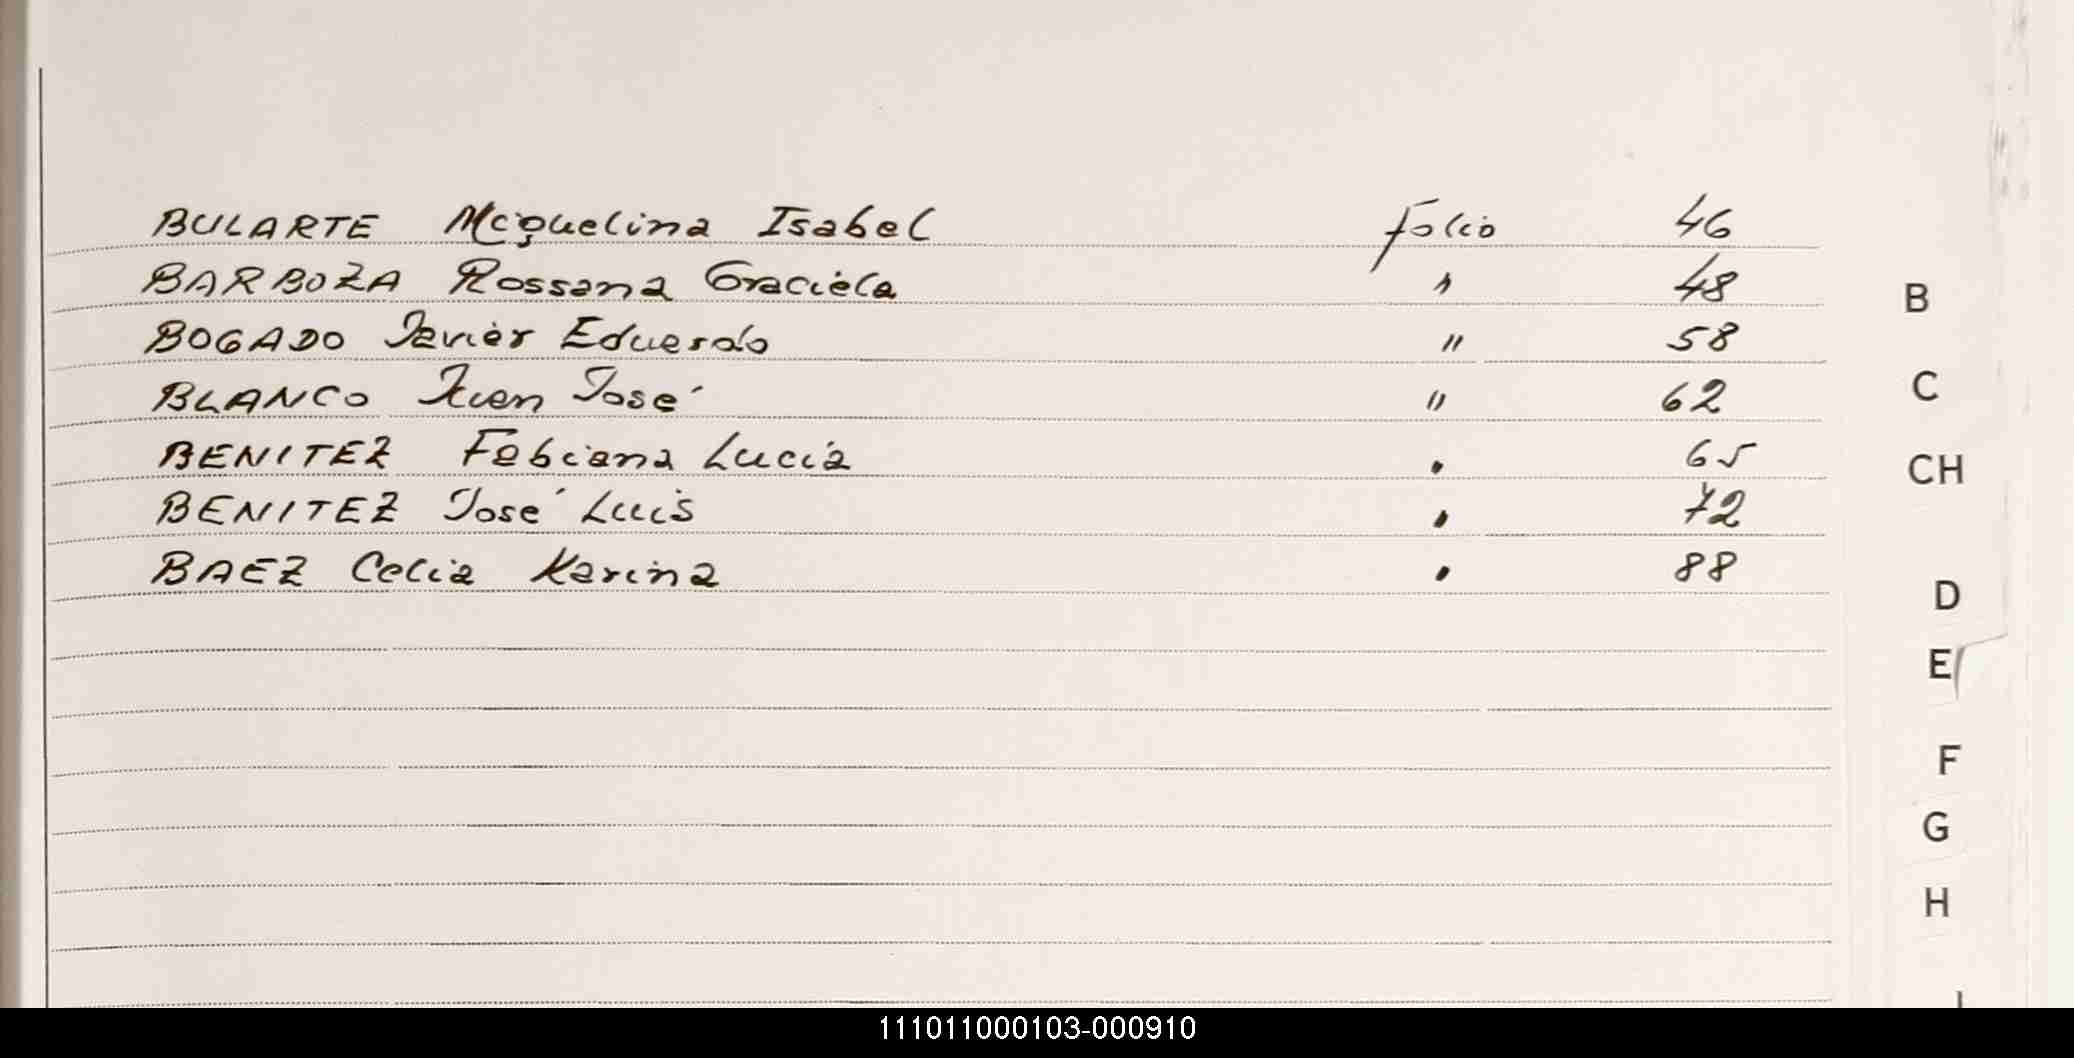 BULARTE Miquelina Isabel folio 46
BARBOZA Rossana Graciela " 48
BOGADO Javier Eduardo " 58
BLANCO Juan José " 62
BENITEZ Fabiana Lucia " 65
BENITEZ José Luis " 72
BAEZ Celia Karina " 88
B
C
CH
D
E
F
G
H
I
111011000103-000910